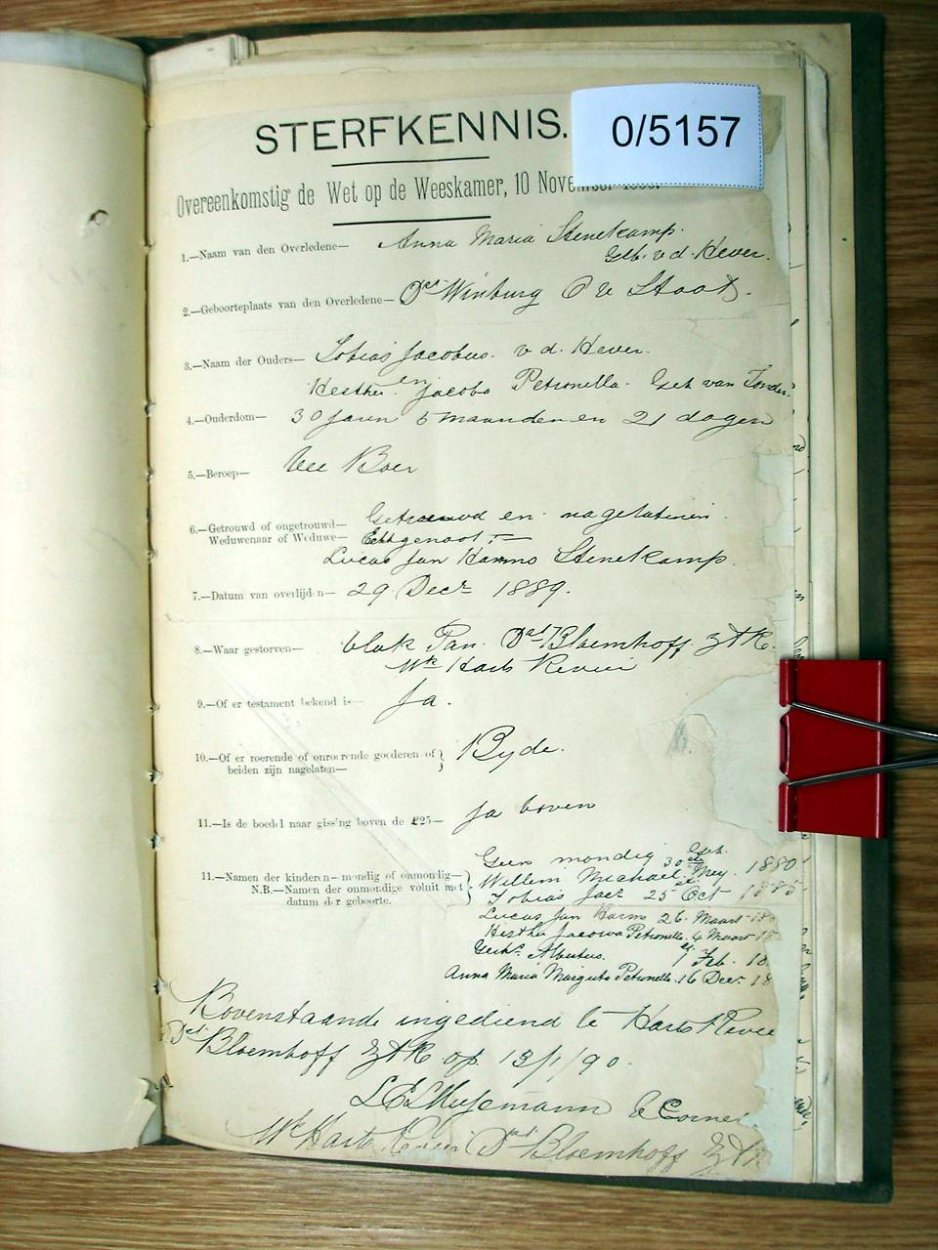 0/5157
STERFKENNIS.
Overeenkomstig de Wet op de Weeskamer, 10
1.—Naam van den Overledene— Anna Maria Stenekamp.
Geb. v d. Hever.
2.—Geboorteplaats van den Overledene— Dist Winburg O V Staat.
3.—Naam der Ouders— Tobias Jacobus. v d. Hever.
en
Hesther Jacoba Petronella. Geb van Tonder.
4.—Ouderdom— 30 jaren 5 maanden en 21 dagen
5.—Beroep— Vee Boer
6.—Getrouwd of ongetrouwd— Getrouwd en nagelatenen
Weduwenaar of Weduwe— Echtgenoot :—
Lucas Jan Harms Stenekamp.
7.—Datum van overlijden— 29 Decr 1889.
8.—Waar gestorven— vlak Pan. Dist Bloemhoff ZAR.
Wk Harts Revier
9.—Of er testament bekend is— Ja.
10.—Of er roerende of onroerende goederen of Byde.
beiden zijn nagelaten—
11.—Is de boedel naar gissing boven de £25— Ja boven
Geen mondig Geb.
11.—Namen der kinderen—mondig of onmondig— Willem Michael 30 Mey. 1880
N.B.—Namen der onmondige voluit met Tobias Jacs 25 Oct 1885
datum der geboorte.
Lucas Jan Harms 26. Maart
Hesther Jacowa Petronella. 4 Maart
Albertus. 1 Feb. 18
Anna Maria Margreta Petronella. 16 Decr. 18
Bovenstaande ingediend te Harts Revier
Dist Bloemhoff ZAR op 13/1/90.
Wk Harts Revier Dist Bloemhoff ZAR